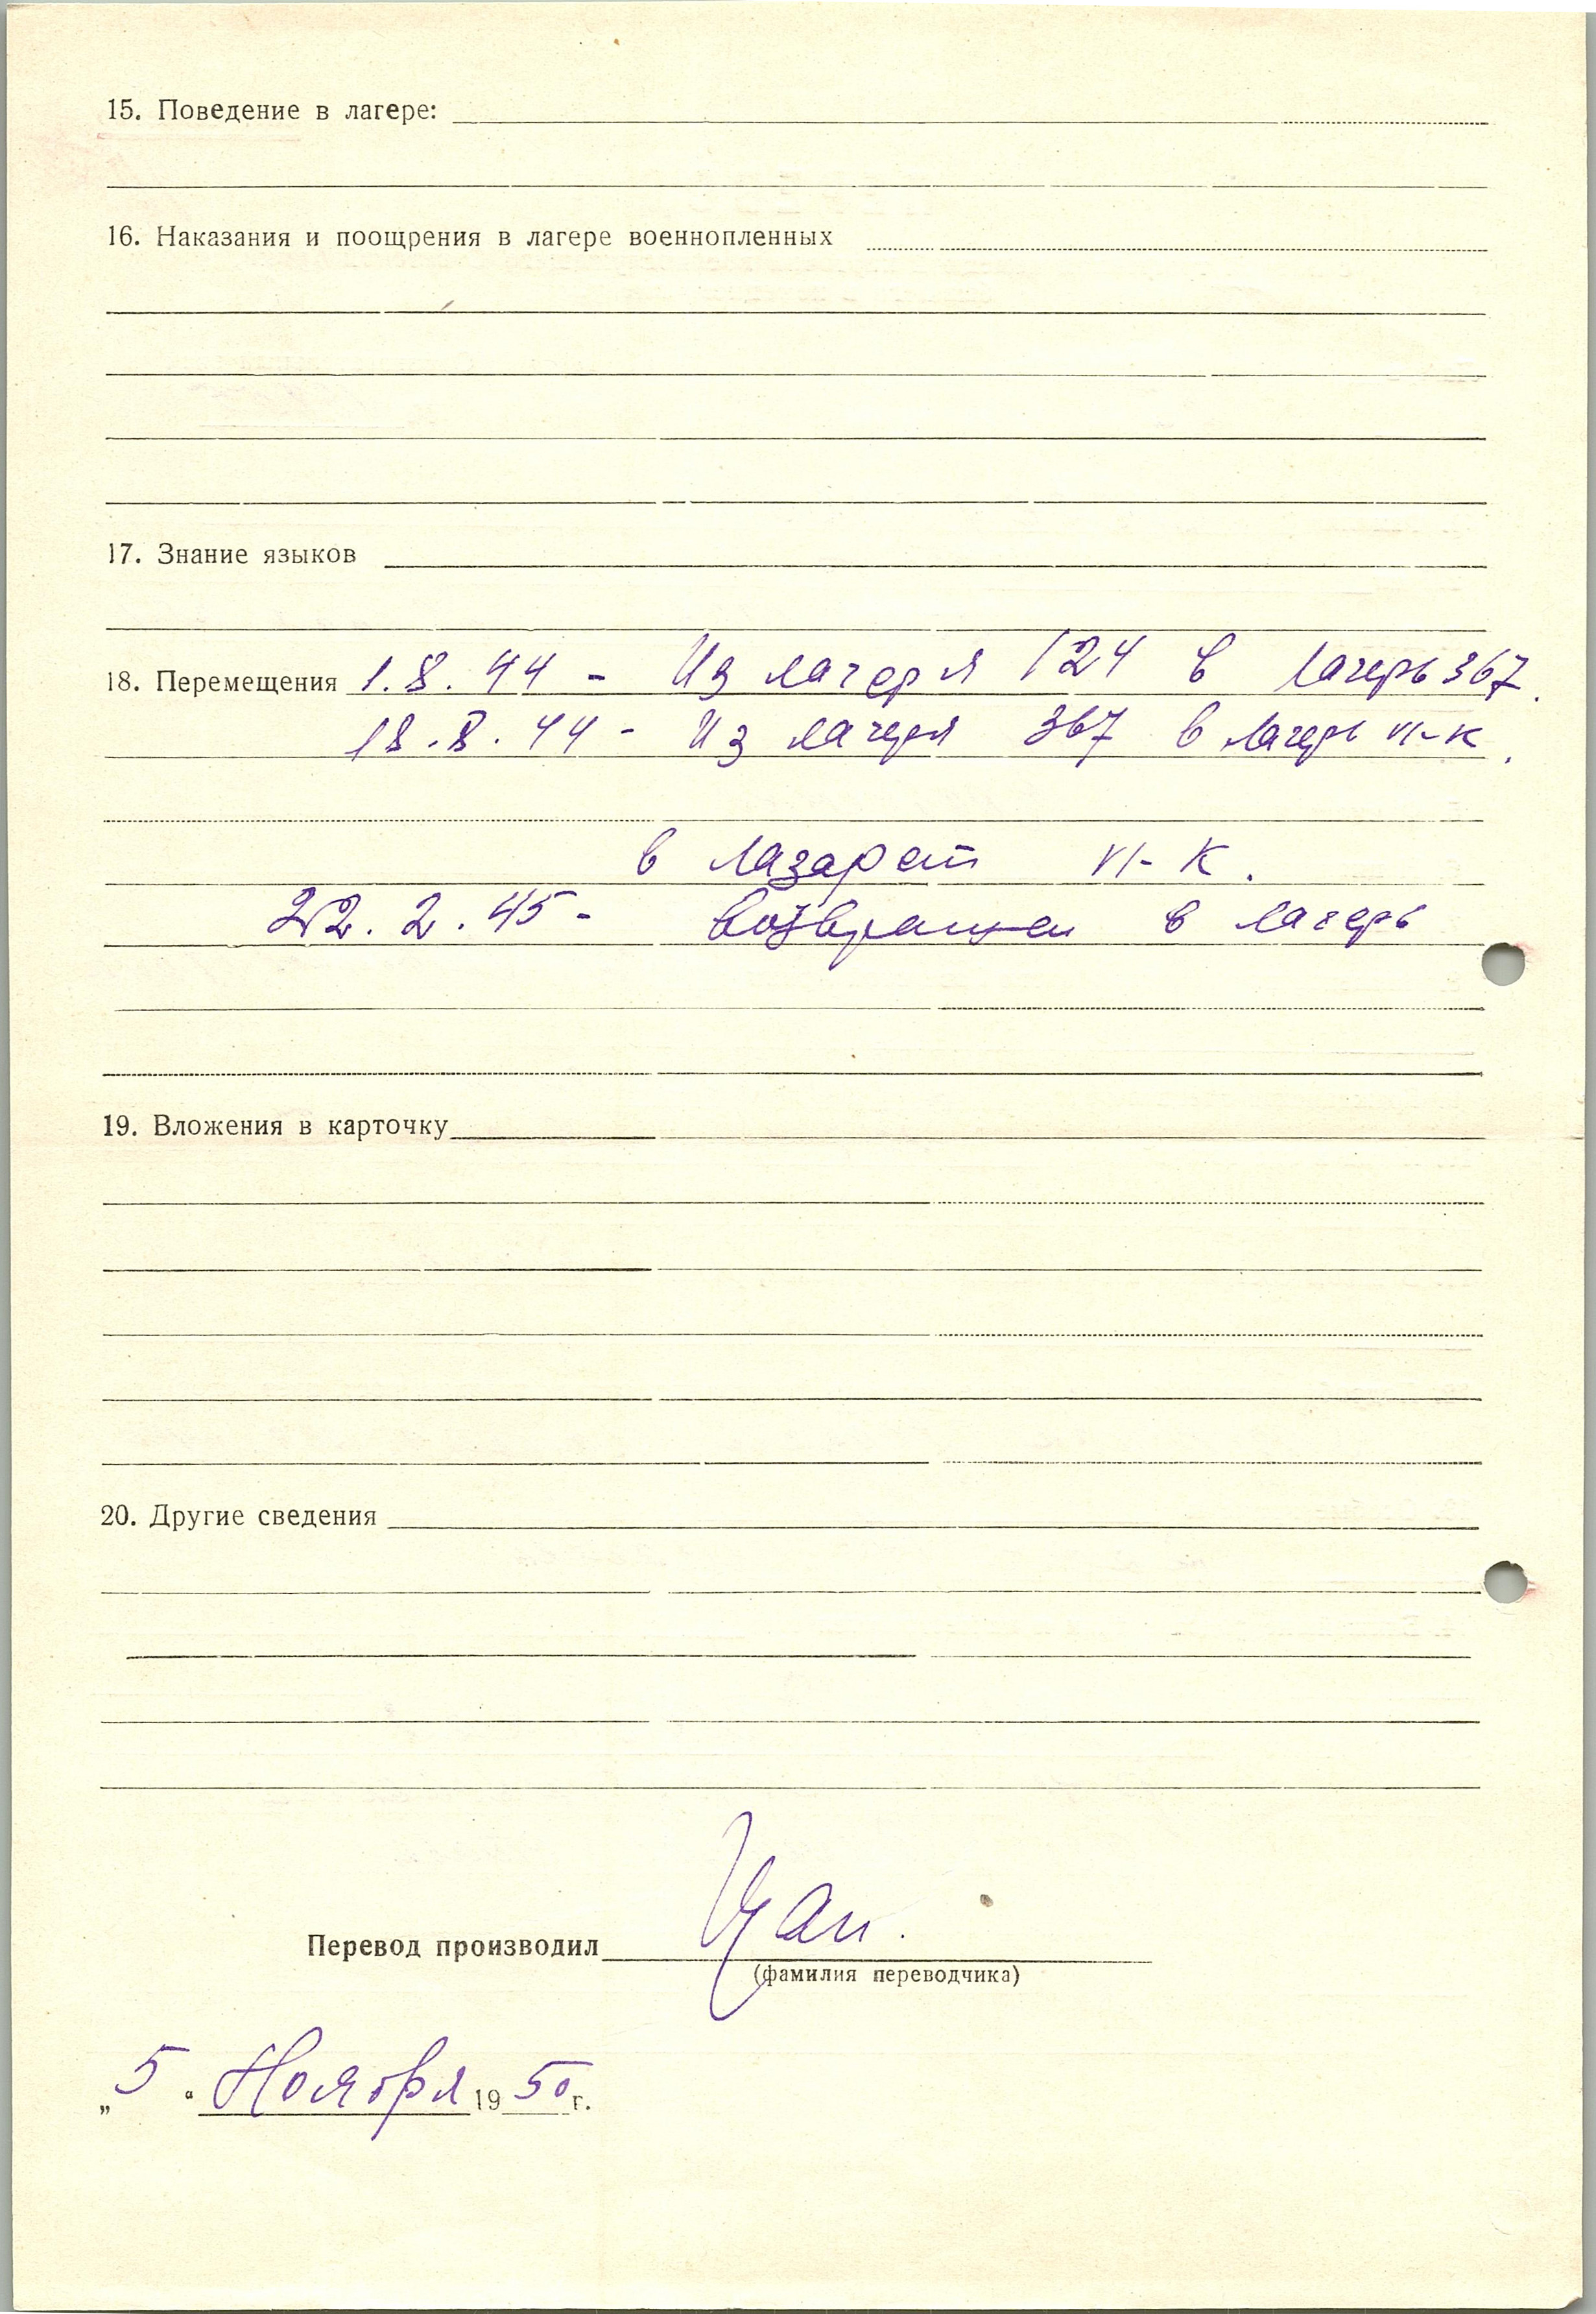 15. Поведение в лагере:
16. Наказания и поощрения в лагере военнопленных
17. Знание языков
18. Перемещения 1.8.44 - Из лагеря 124 в лагерь 367.
18.8.44 - Из лагеря 367 в лагерь VI-К.
в лазарет VI-К.
22.2.45 - возвращен в лагерь
19. Вложения в карточку
20. Другие сведения
Перевод производил
(фамилия переводчика)
„5“ Ноября 1950г.